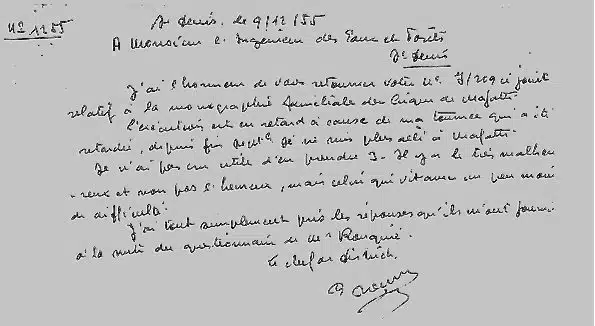 N° 1255
St Denis, le 9/12/55
A Monsieur l'Ingénieur des Eaux et Forêts
St Denis
J'ai l'honneur de vous retourner votre n° J/209 ci joint
relatif à la monographie familiale du Cirque de Mafatte.
L'exécution est en retard à cause de ma tournée qui a été
retardée, depuis fin Sept. je ne suis plus allé à Mafatte.
Je n'ai pas cru utile d'en prendre 3. Il y a le très malheu
-reux et non pas l'heureux, mais celui qui vit avec un peu moins
de difficulté.
J'ai tout simplement pris les réponses qu'ils m'ont fourni
à la suite du questionnaire de Mr
Le chef de district.